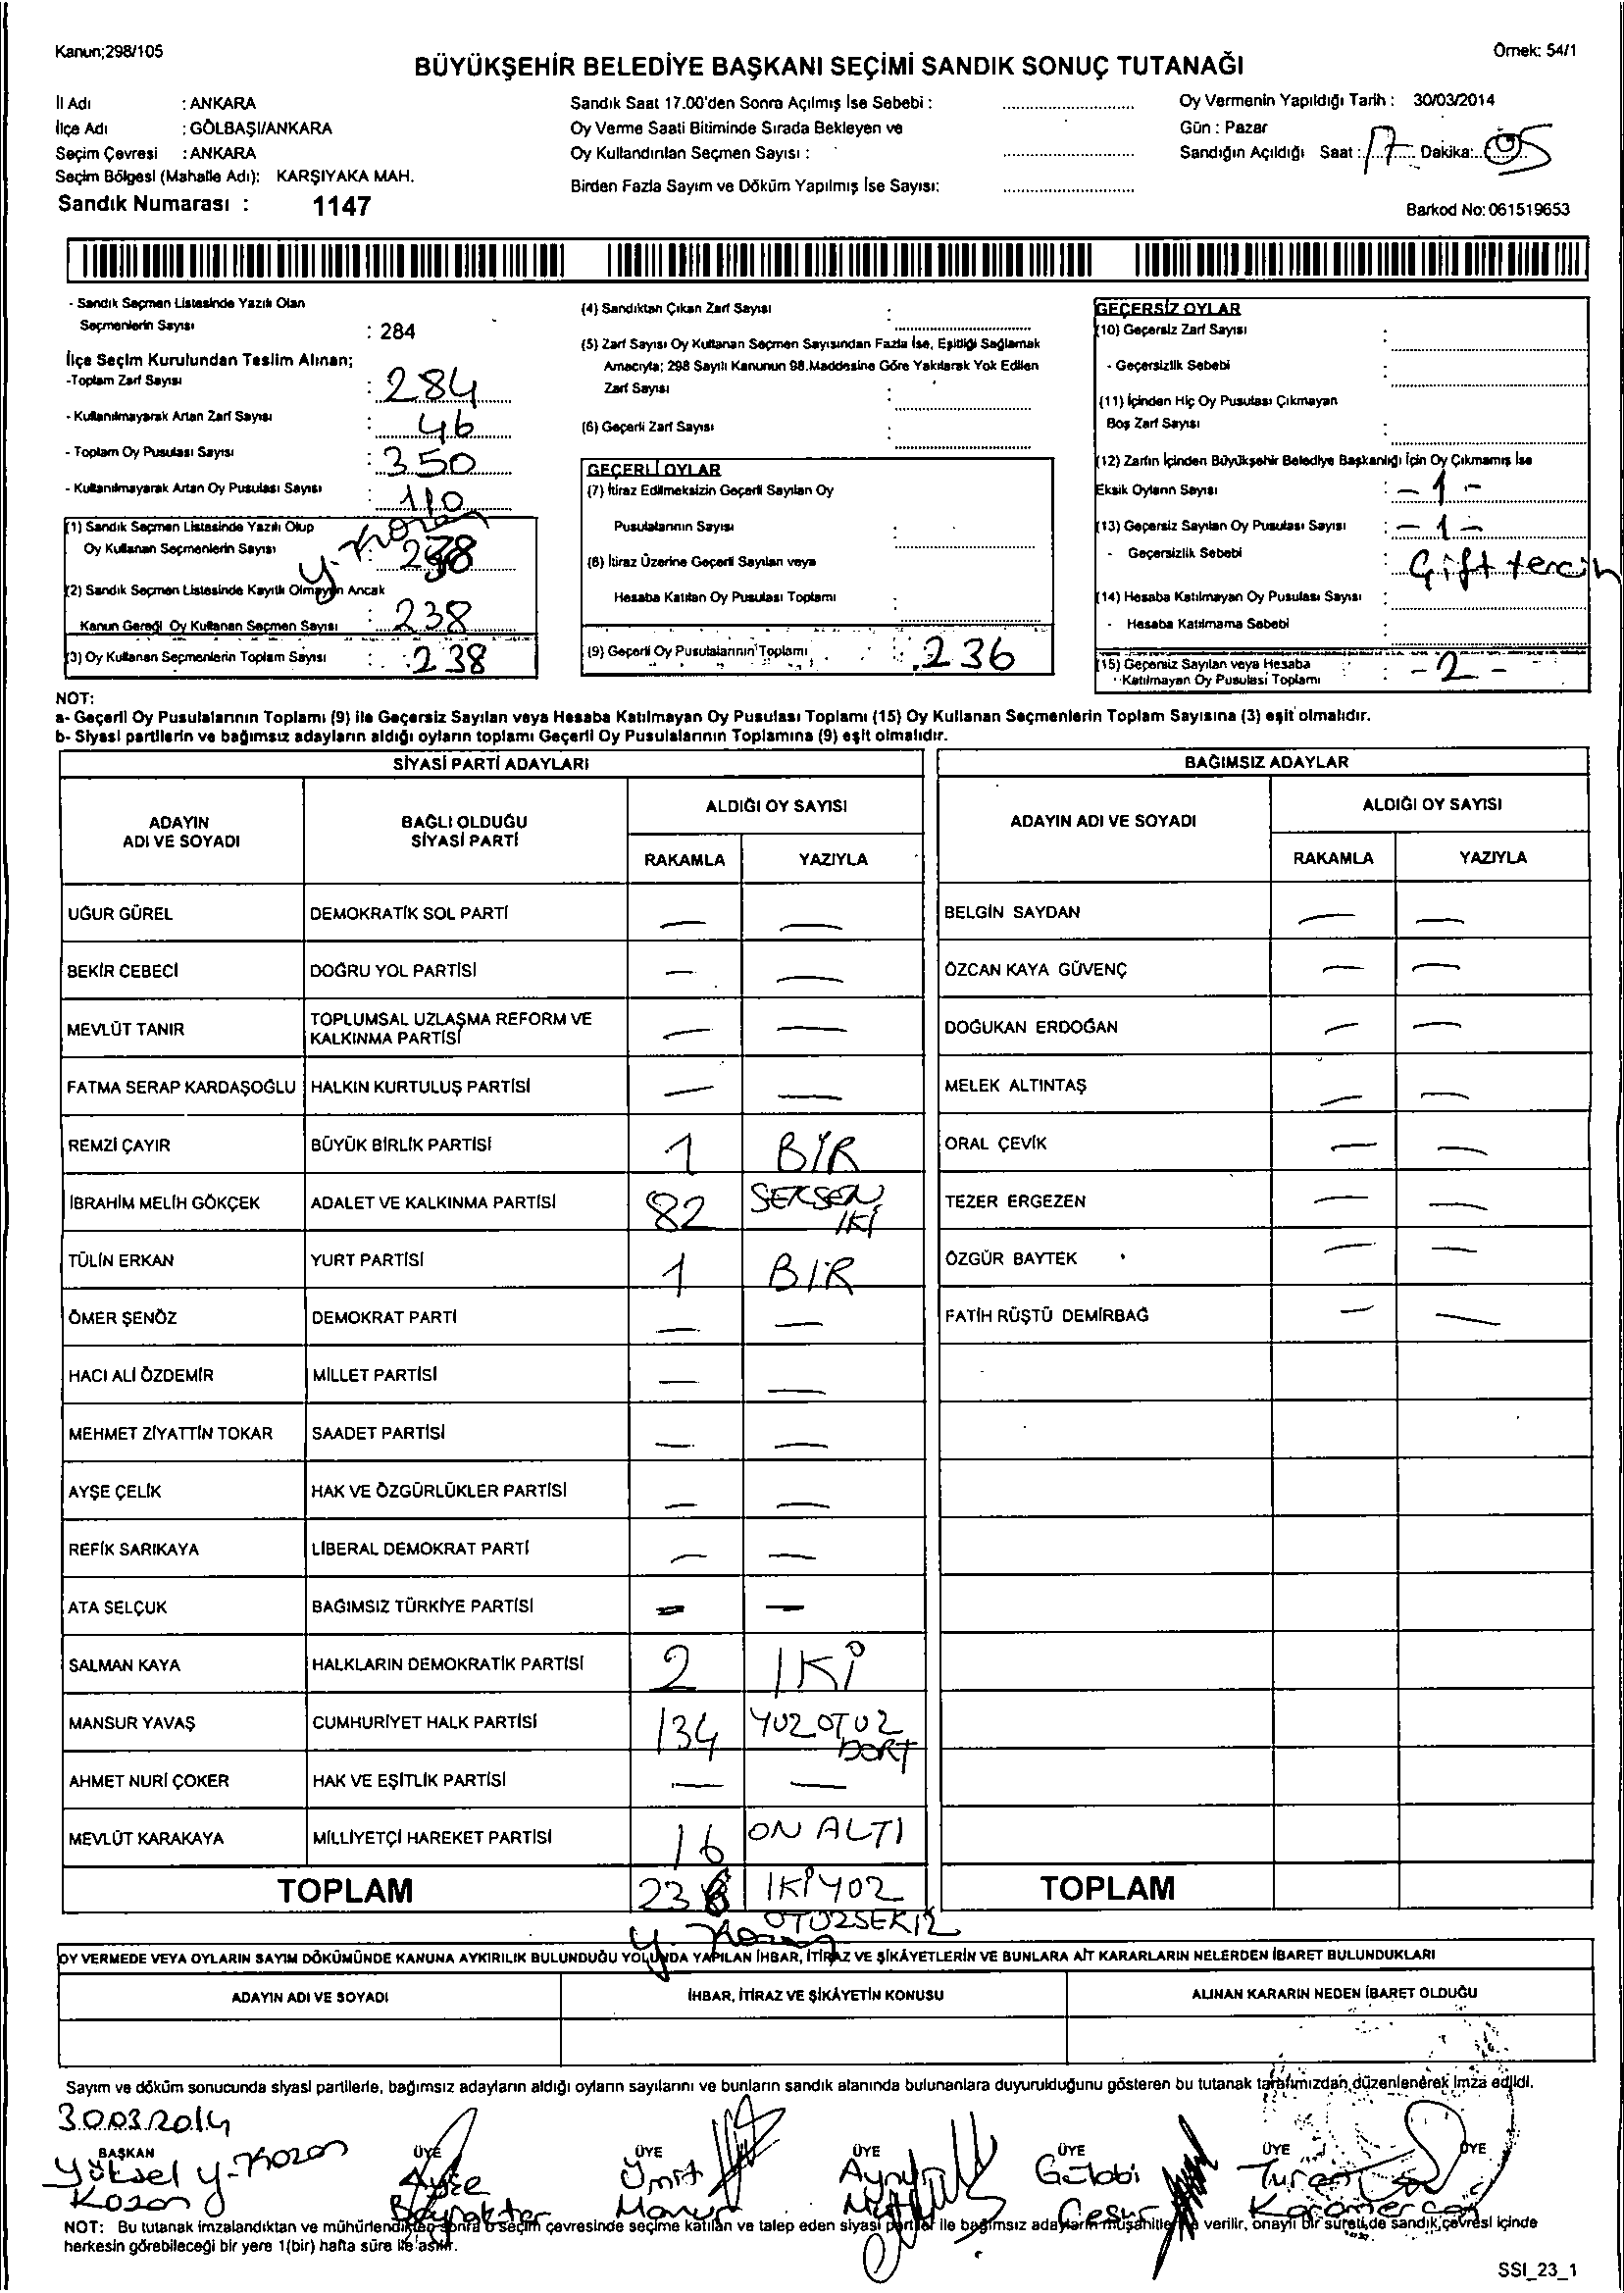 Kanun;298/105
Örnek: 54/1
BÜYÜKŞEHİR BELEDİYE BAŞKANI SEÇİMİ SANDIK SONUÇ TUTANAĞI
İl Adı : ANKARA
İlçe Adı : GÖLBAŞI/ANKARA
Seçim Çevresi : ANKARA
Seçim Bölgesi (Mahalle Adı): KARŞIYAKA MAH.
Sandık Numarası : 1147
Sandık Saat 17.00'den Sonra Açılmış İse Sebebi :
Oy Verme Saati Bitiminde Sırada Bekleyen ve
Oy Kullandırılan Seçmen Sayısı :
Birden Fazla Sayım ve Döküm Yapılmış İse Sayısı:
Oy Vermenin Yapıldığı Tarih : 30/03/2014
Gün : Pazar
Sandığın Açıldığı Saat : 17 Dakika: 05
Barkod No: 061519653
- Sandık Seçmen Listesinde Yazılı Olan
Seçmenlerin Sayısı : 284
İlçe Seçim Kurulundan Teslim Alınan;
-Toplam Zarf Sayısı : 284
- Kullanılmayarak Artan Zarf Sayısı : 46
- Toplam Oy Pusulası Sayısı : 350
- Kullanılmayarak Artan Oy Pusulası Sayısı : 110
(1) Sandık Seçmen Listesinde Yazılı Olup
Oy Kullanan Seçmenlerin Sayısı : 238
y. Kozan
(2) Sandık Seçmen Listesinde Kayıtlı Olmayan Ancak
Kanun Gereği Oy Kullanan Seçmen Sayısı : 238
(3) Oy Kullanan Seçmenlerin Toplam Sayısı : 238
(4) Sandıktan Çıkan Zarf Sayısı :
(5) Zarf Sayısı Oy Kullanan Seçmen Sayısından Fazla İse, Eşitliği Sağlamak
Amacıyla; 298 Sayılı Kanunun 98.Maddesine Göre Yakılarak Yok Edilen
Zarf Sayısı :
(6) Geçerli Zarf Sayısı :
GEÇERLİ OYLAR
(7) İtiraz Edilmeksizin Geçerli Sayılan Oy
Pusulalarının Sayısı :
(8) İtiraz Üzerine Geçerli Sayılan veya
Hesaba Katılan Oy Pusulası Toplamı :
(9) Geçerli Oy Pusulalarının Toplamı : 236
GEÇERSİZ OYLAR
(10) Geçersiz Zarf Sayısı :
- Geçersizlik Sebebi :
(11) İçinden Hiç Oy Pusulası Çıkmayan
Boş Zarf Sayısı :
(12) Zarfın İçinden Büyükşehir Belediye Başkanlığı İçin Oy Çıkmamış İse
Eksik Oyların Sayısı : - 1 -
(13) Geçersiz Sayılan Oy Pusulası Sayısı : - 1 -
- Geçersizlik Sebebi : Çift tercih
(14) Hesaba Katılmayan Oy Pusulası Sayısı :
- Hesaba Katılmama Sebebi :
(15) Geçersiz Sayılan veya Hesaba
Katılmayan Oy Pusulası Toplamı : - 2 -
NOT:
a- Geçerli Oy Pusulalarının Toplamı (9) ile Geçersiz Sayılan veya Hesaba Katılmayan Oy Pusulası Toplamı (15) Oy Kullanan Seçmenlerin Toplam Sayısına (3) eşit olmalıdır.
b- Siyasi partilerin ve bağımsız adayların aldığı oyların toplamı Geçerli Oy Pusulalarının Toplamına (9) eşit olmalıdır.
SİYASİ PARTİ ADAYLARI
ADAYIN ADI VE SOYADI
BAĞLI OLDUĞU SİYASİ PARTİ
ALDIĞI OY SAYISI
RAKAMLA YAZIYLA
UĞUR GÜREL DEMOKRATİK SOL PARTİ — —
BEKİR CEBECİ DOĞRU YOL PARTİSİ — —
MEVLÜT TANIR TOPLUMSAL UZLAŞMA REFORM VE KALKINMA PARTİSİ — —
FATMA SERAP KARDAŞOĞLU HALKIN KURTULUŞ PARTİSİ — —
REMZİ ÇAYIR BÜYÜK BİRLİK PARTİSİ 1 BİR
İBRAHİM MELİH GÖKÇEK ADALET VE KALKINMA PARTİSİ 82 SEKSEN İKİ
TÜLİN ERKAN YURT PARTİSİ 1 BİR
ÖMER ŞENÖZ DEMOKRAT PARTİ — —
HACI ALİ ÖZDEMİR MİLLET PARTİSİ — —
MEHMET ZİYATTİN TOKAR SAADET PARTİSİ — —
AYŞE ÇELİK HAK VE ÖZGÜRLÜKLER PARTİSİ — —
REFİK SARIKAYA LİBERAL DEMOKRAT PARTİ — —
ATA SELÇUK BAĞIMSIZ TÜRKİYE PARTİSİ — —
SALMAN KAYA HALKLARIN DEMOKRATİK PARTİSİ 2 İKİ
MANSUR YAVAŞ CUMHURİYET HALK PARTİSİ 134 YUZ OTUZ DORT
AHMET NURİ ÇOKER HAK VE EŞİTLİK PARTİSİ — —
MEVLÜT KARAKAYA MİLLİYETÇİ HAREKET PARTİSİ 16 ON ALTI
TOPLAM IKİYOZ OTUZSEKİZ
y. Kozan
BAĞIMSIZ ADAYLAR
ADAYIN ADI VE SOYADI
ALDIĞI OY SAYISI
RAKAMLA YAZIYLA
BELGİN SAYDAN — —
ÖZCAN KAYA GÜVENÇ — —
DOĞUKAN ERDOĞAN — —
MELEK ALTINTAŞ — —
ORAL ÇEVİK — —
TEZER ERGEZEN — —
ÖZGÜR BAYTEK — —
FATİH RÜŞTÜ DEMİRBAĞ — —
TOPLAM
OY VERMEDE VEYA OYLARIN SAYIM DÖKÜMÜNDE KANUNA AYKIRILIK BULUNDUĞU YOLUNDA YAPILAN İHBAR, İTİRAZ VE ŞİKÂYETLERİN VE BUNLARA AİT KARARLARIN NELERDEN İBARET BULUNDUKLARI
ADAYIN ADI VE SOYADI
İHBAR, İTİRAZ VE ŞİKÂYETİN KONUSU
ALINAN KARARIN NEDEN İBARET OLDUĞU
Sayım ve döküm sonucunda siyasi partilerle, bağımsız adayların aldığı oyların sayılarını ve bunların sandık alanında bulunanlara duyurulduğunu gösteren bu tutanak tarafımızdan düzenlenerek imza edildi.
30.03.2014
BAŞKAN ÜYE ÜYE ÜYE ÜYE ÜYE ÜYE
Yüksel Kozan y. Kozan
Ayşe Bayraktar
Ümit
Aynur
Gülabi Cesur
Turan
NOT: Bu tutanak imzalandıktan ve mühürlendikten sonra o seçim çevresinde seçime katılan ve talep eden siyasi partiler ile bağımsız adayların müşahitlerine verilir, onaylı bir sureti de sandık çevresi içinde
herkesin görebileceği bir yere 1(bir) hafta süre ile asılır.
SSI_23_1